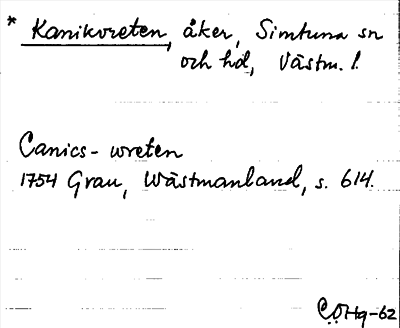 * Kanikvreten, åker, Simtuna sn
och hd, Västm. l.
Canics-wreten
1754 Grau, Wästmanland, s. 614.
C.Ö.Hg-62